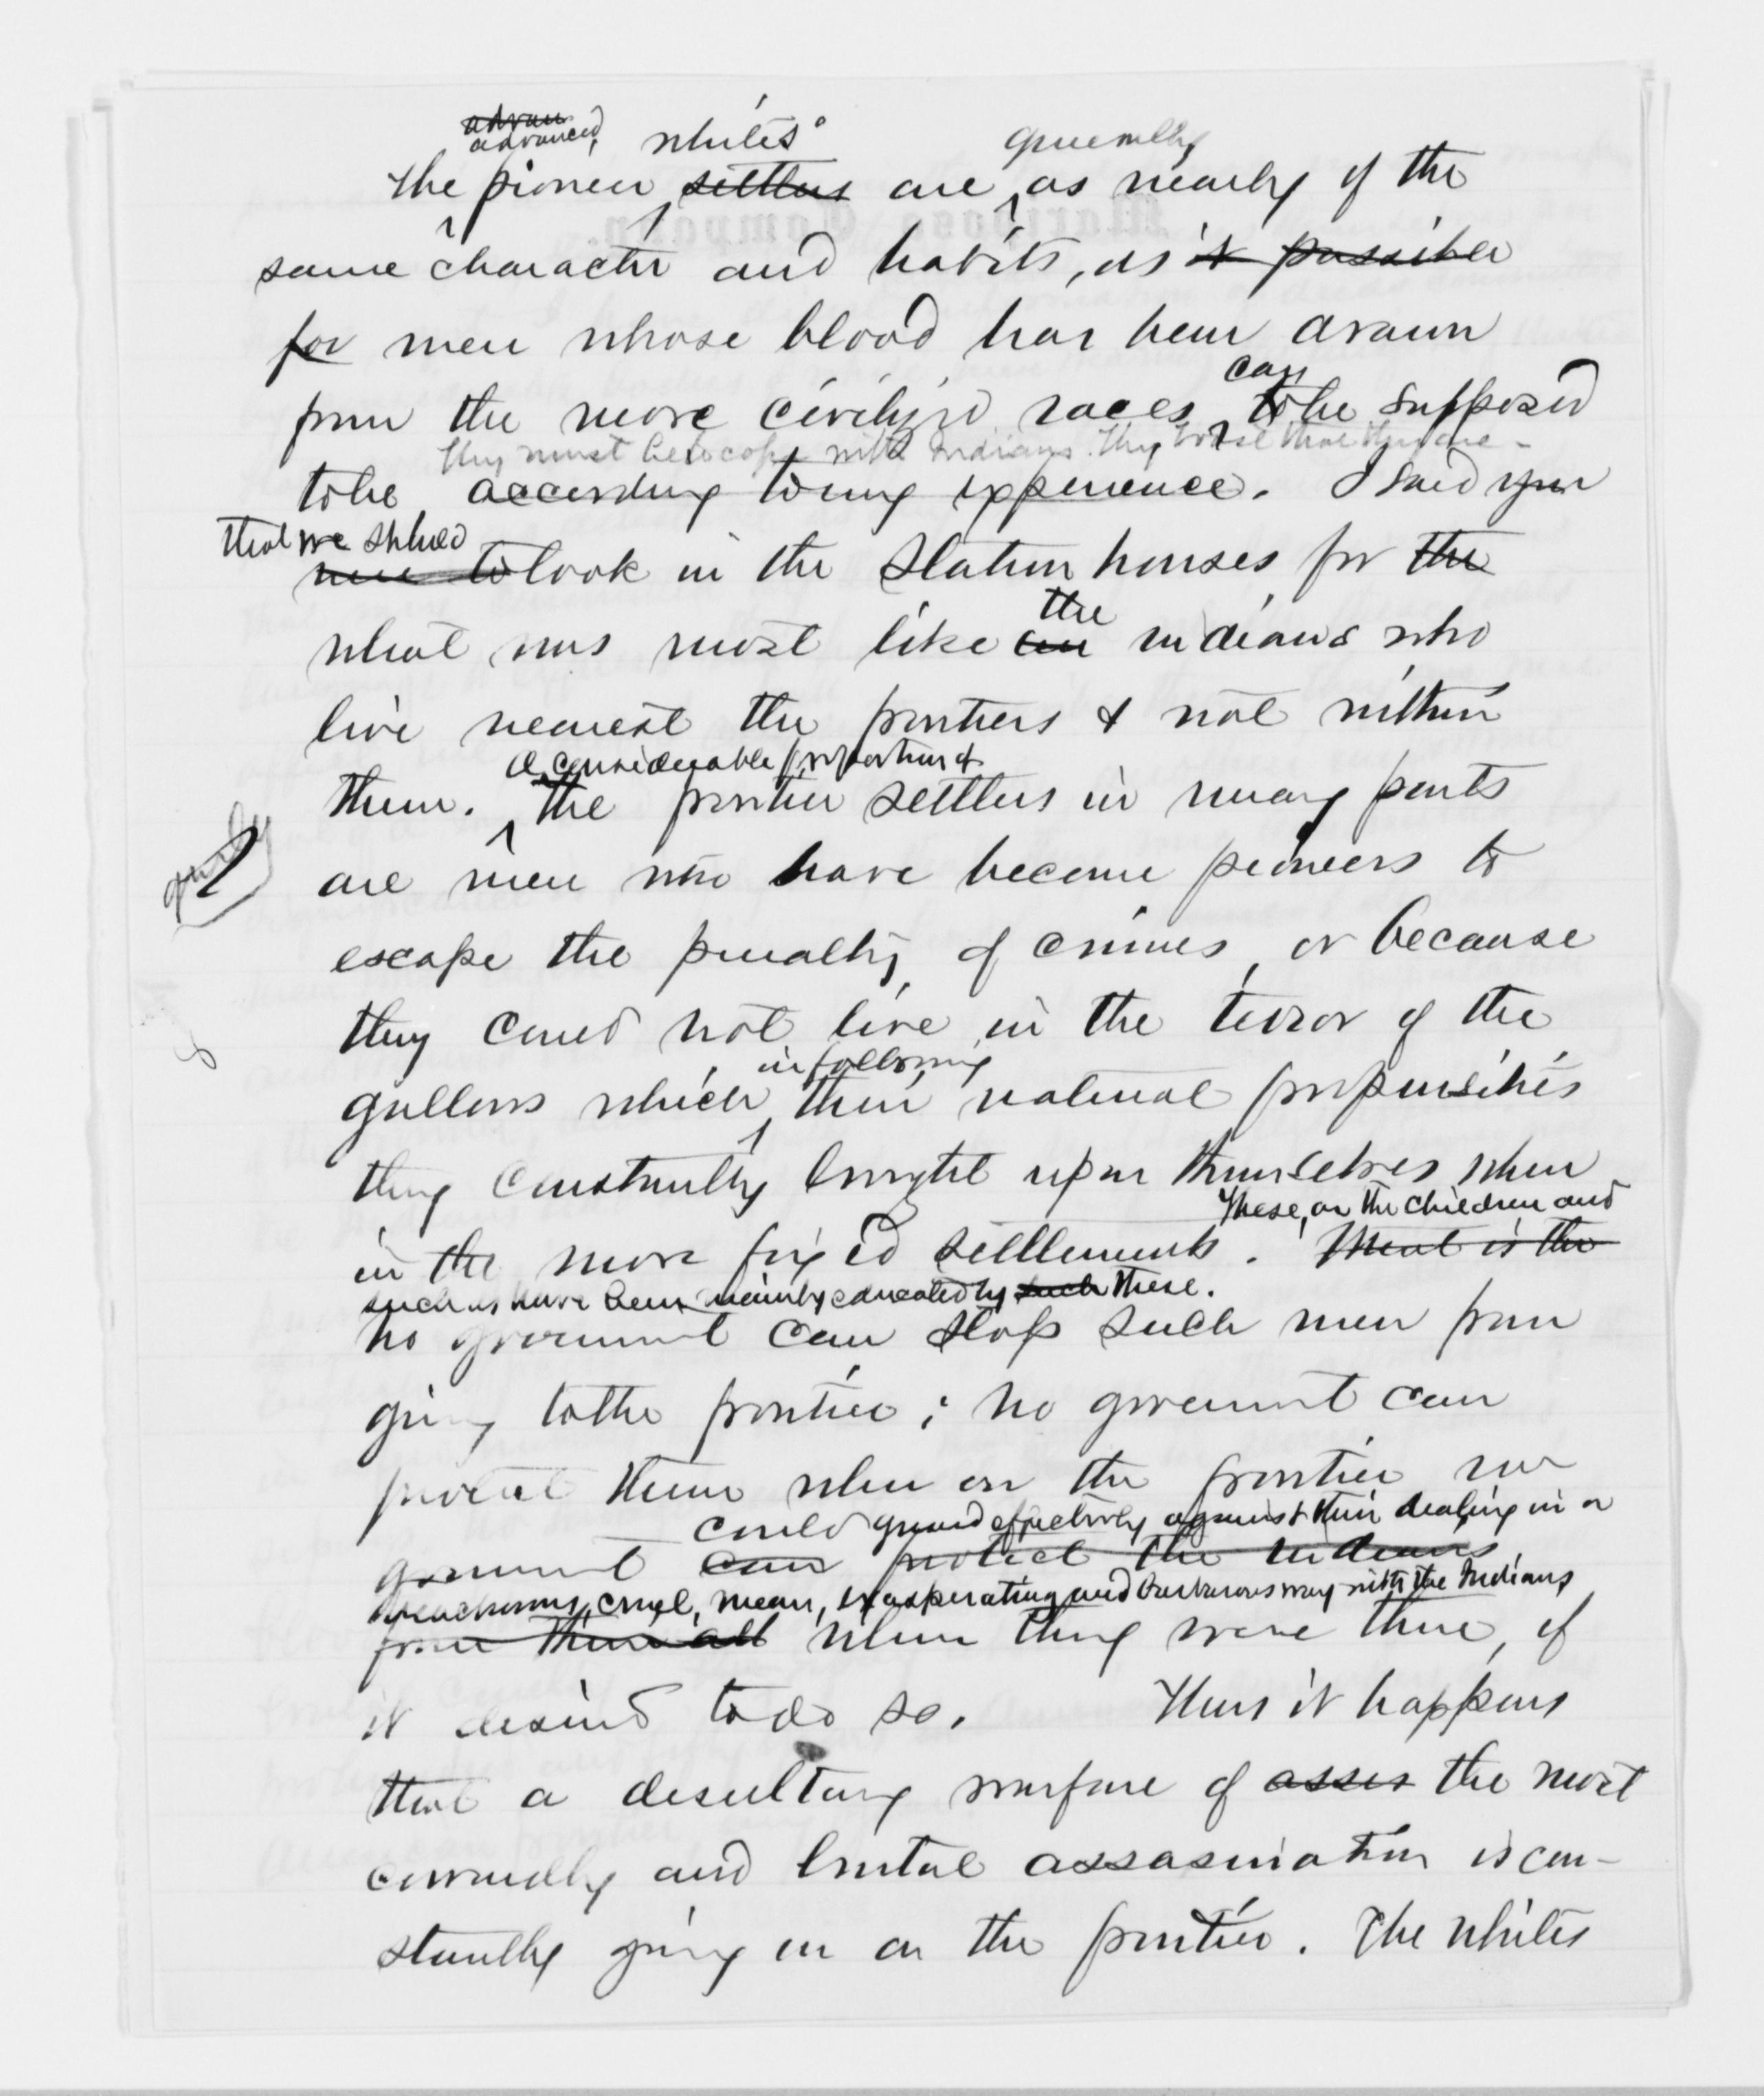 advan
advanced, whites generally
The pioneer settlers are as nearly of the
same character and habits, as it possible
for men whose blood has been drawn
can
from the more civilized races to be supposed
they must be to cope with Indians. They
to be according to my experience. I said you
that we should
were to look in the Station houses for the
the
what was most like an indians who
live nearest the frontiers & not within
a considerable proportion of
them. The frontier settlers in many parts
are men who have become pioneers to
escape the penalty of crimes, or because
they could not live in the terror of the
in following
gallows which their natural propensities
they constantly brought upon themselves when
These, or the children and
in the more fixed settlements. is the
such as have been mainly educated by such these.
No government can stop such men from
going to the frontier; no government can
protect them when on the frontier nor
could guard effectively against their dealing in a
government can protect the Indians
treacherous, cruel, mean, exasperating and barbarous way with the Indians
from them all when they were there, if
it desired to do so. Thus it happens
that a desultory warfare of asses the most
cowardly and brutal assasination is con-
stantly going on on the frontier. The whites